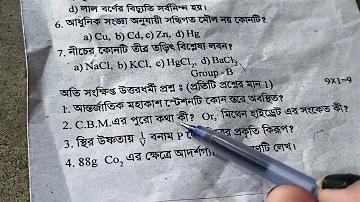 d) লাল বর্ণের বিচ্যুতি সর্বনিম্ন হয়।
6. আধুনিক সংজ্ঞা অনুযায়ী সন্ধিগত মৌল নয় কোনটি?
a) Cu, b) Cd, c) Zn, d) Hg
7. নীচের কোনটি তীব্র তড়িৎ বিশ্লেষ্য লবন?
a) NaCl, b) KCl, c) HgCl₂, d) BaCl₂
Group - B
অতি সংক্ষিপ্ত উত্তরধর্মী প্রশ্ন : (প্রতিটি প্রশ্নের মান 1) 9X1=9
1. আন্তর্জাতিক মহাকাশ স্টেশনটি কোন স্তরে অবস্থিত?
2. C.B.M.এর পুরো কথা কী? Or, মিথেন হাইড্রেট এর সংকেত কী?
3. স্থির উষ্ণতায় 1/V বনাম P প্রকৃতি কিরূপ?
4. 88g Co₂ এর ক্ষেত্রে লেখ।